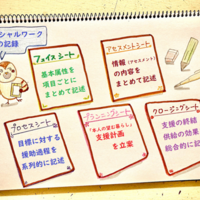 ソーシャルワーク
の記録
フェイスシート
基本属性を
項目ごとに
まとめて記述
アセスメントシート
情報(アセスメント)
の内容を
まとめて記述
プロセスシート
目標に対する
援助過程を
系列的に記述
プランニングシート
"本人の望む暮らし"
支援計画
を立案
クロージングシート
支援の終結
供給の効果
総合的に記